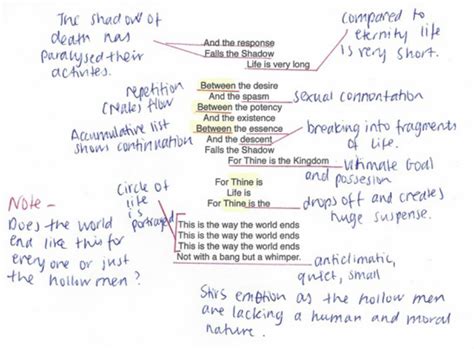 The shadow of
death has
paralysed their
activites.
And the response
Falls the Shadow
Life is very long
compared to
eternity life
is very short.
repetition
creates flow
Accumulative list
shows continuation
Between the desire
And the spasm
Between the potency
And the existence
Between the essence
And the descent
Falls the Shadow
For Thine is the Kingdom
sexual connontation
breaking into fragments
of life.
ultimate Goal
and possesion
For Thine is
Life is
For Thine is the
drops off and creates
huge suspense.
Circle of
life
is
portrayed
This is the way the world ends
This is the way the world ends
This is the way the world ends
Not with a bang but a whimper.
anticlimatic,
quiet, small
Note -
Does the world
end like this for
everyone or just
the hollow men?
Stirs emotion as the hollow men
are lacking a human and moral
nature.